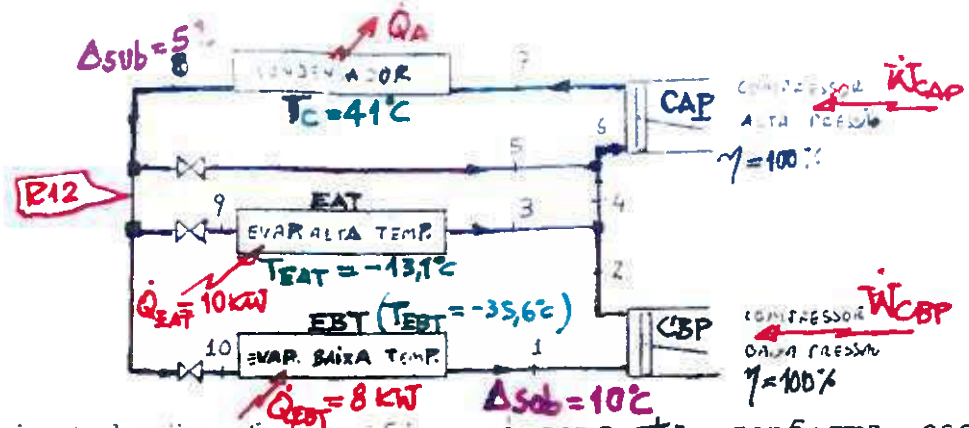 Δsub = 5°
8
Q̇A
7
CONDENSADOR
T_C = 41°C
CAP
COMPRESSOR
ALTA PRESSÃO
ẆCAP
η = 100%
6
5
R12
9
EAT
3
4
EVAP. ALTA TEMP.
T_EAT = -13,1°C
Q̇EAT = 10 KW
2
EBT (T_EBT = -35,6°C)
CBP
COMPRESSOR
BAIXA PRESSÃO
ẆCBP
η = 100%
10
EVAP. BAIXA TEMP.
1
Q̇EBT = 8 KW
Δsob = 10°C